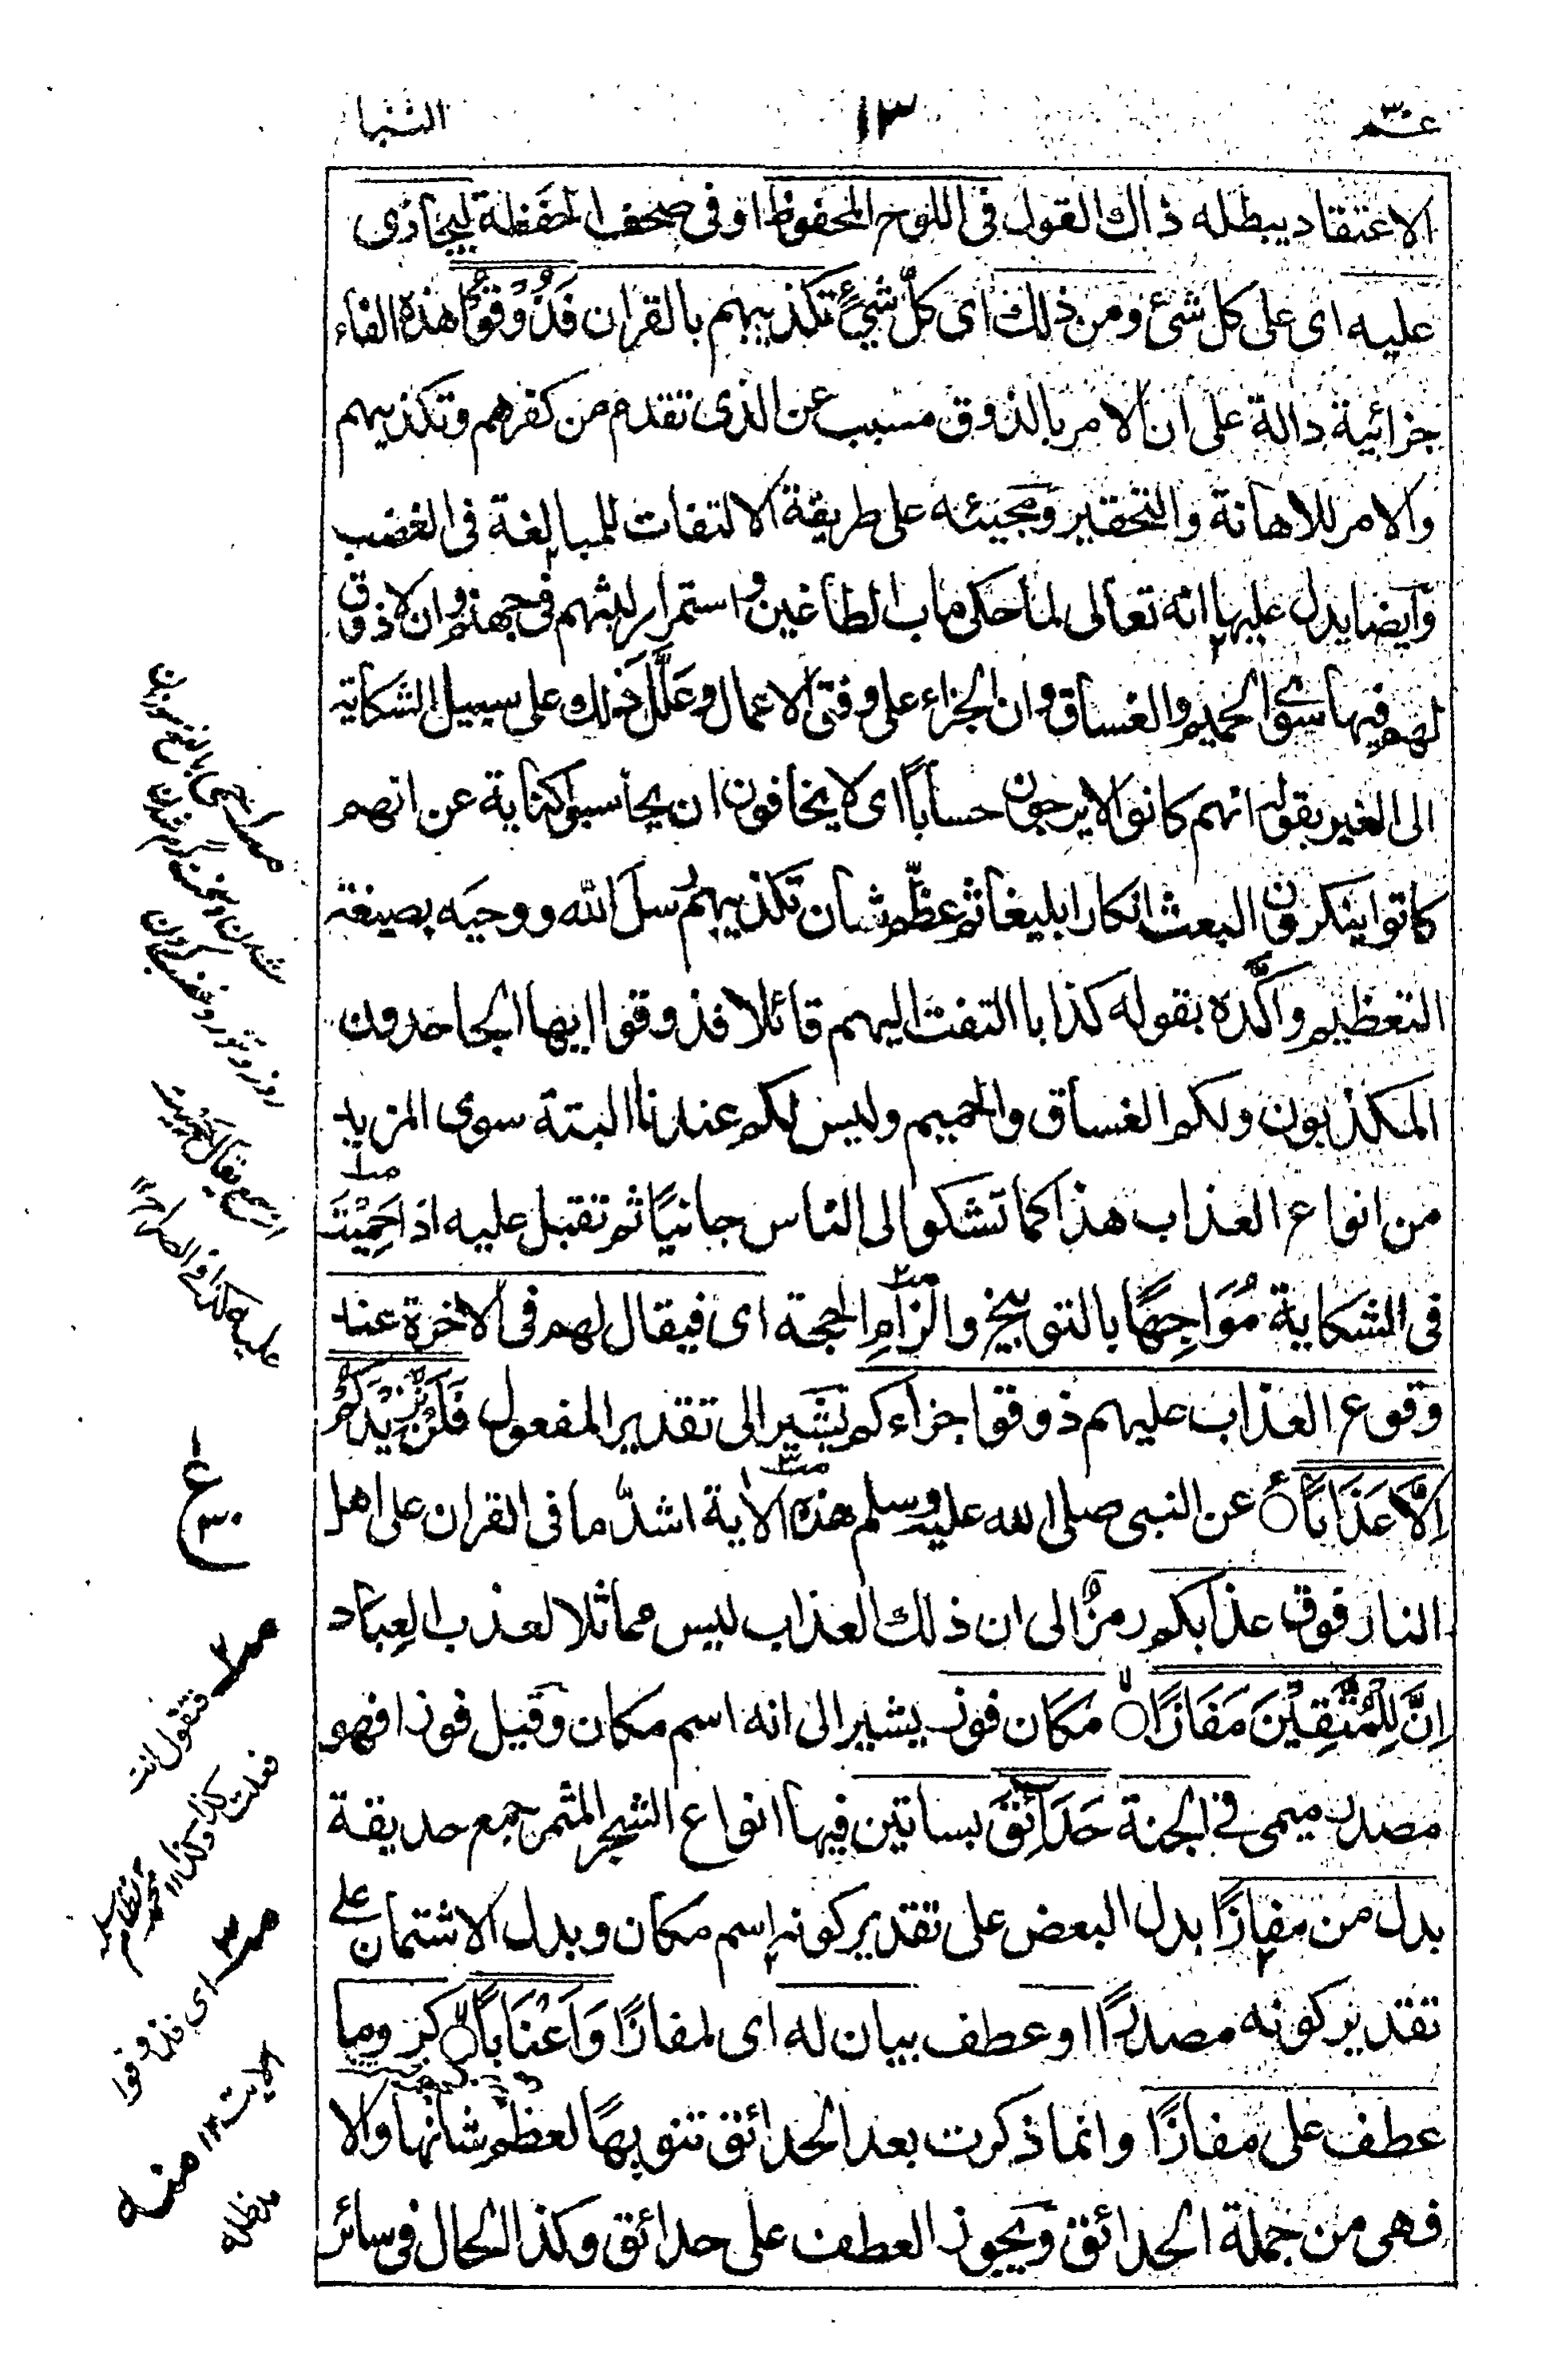 عم ٣٠
١٣
النبأ
الاعتقاد يبطله ذاك القول فى اللوح المحفوظ او فى صحف الحفظة ليجازى
عليه اى على كل شئ ومن ذلك اى كلّ شئٍ تكذيبهم بالقران فَذُوْقُوْا هذه الفاء
جزائية دالة على ان الامر بالذوق مسبب عن الذى تقدم من كفرهم وتكذيبهم
والامر للاهانة والتحقير ومجيئه على طريقة الالتفات للمبالغة فى الغضب
وايضا يدل عليها انه تعالى لما حكى ماب الطاغين واستمرار لبثهم فى جهنم وان لا ذوق
لهم فيها سوى الحميم والغساق وان الجزاء على وفق الاعمال وعَلَّلَ ذلك على سبيل الشكاية
الى الغير بقوله انهم كانوا لا يرجون حساباً اى لا يخافون ان يحاسبوا كناية عن انهم
كانوا ينكرون البعث انكارا بليغا ثم عظّم شان تكذيبهم رسل الله ووحيه بصيغة
التعظيم واكَّده بقوله كذابا التفت اليهم قائلا فذوقوا ايها الجاحدون
المكذبون ولكم الغساق والحميم وليس لكم عندنا البتة سوى المزيد
من انواع العذاب هذا كما تشكو الى الناس جانيًا ثم تقبل عليه اذا حَمِيْتَ
فى الشكاية مُوَاجِهًا بالتوبيخ والزامِ الحجة اى فيقال لهم فى الاخرة عند
وقوع العذاب عليهم ذوقوا جزاءكم يشير الى تقدير المفعول فَلَنْ نَّزِيْدَكُمْ
اِلَّا عَذَابًا عن النبى صلى الله عليه وسلم هذه الاية اشدّ ما فى القران على اهل
النار فوق عذابكم رمزٌ الى ان ذلك العذاب ليس مماثلا لعذب العِبَاد
اِنَّ لِلْمُتَّقِيْنَ مَفَازًا مكان فوز يشير الى انه اسم مكان وقيل فوزا فهو
مصدر ميمى فى الجنة حَدَآئِقَ بساتين فيها انواع الشجر المثمر جمع حديقة
بدل من مفازًا بدل البعض على تقدير كونه اسم مكان وبدل الاشتمال على
تقدير كونه مصدرًا او عطف بيان له اى لمفازًا وَاَعْنَابًا كروما
عطف على مفازًا وانما ذكرت بعد الحدائق تنويهًا لعظم شانها والا
فهى من جملة الحدائق ويجوز العطف على حدائق وكذا الحال فى سائر
ع
٣٠
فتقول انت
فعلت كذا وكذا
اى فذوقوا
الايت ١٢ منه
مدظله